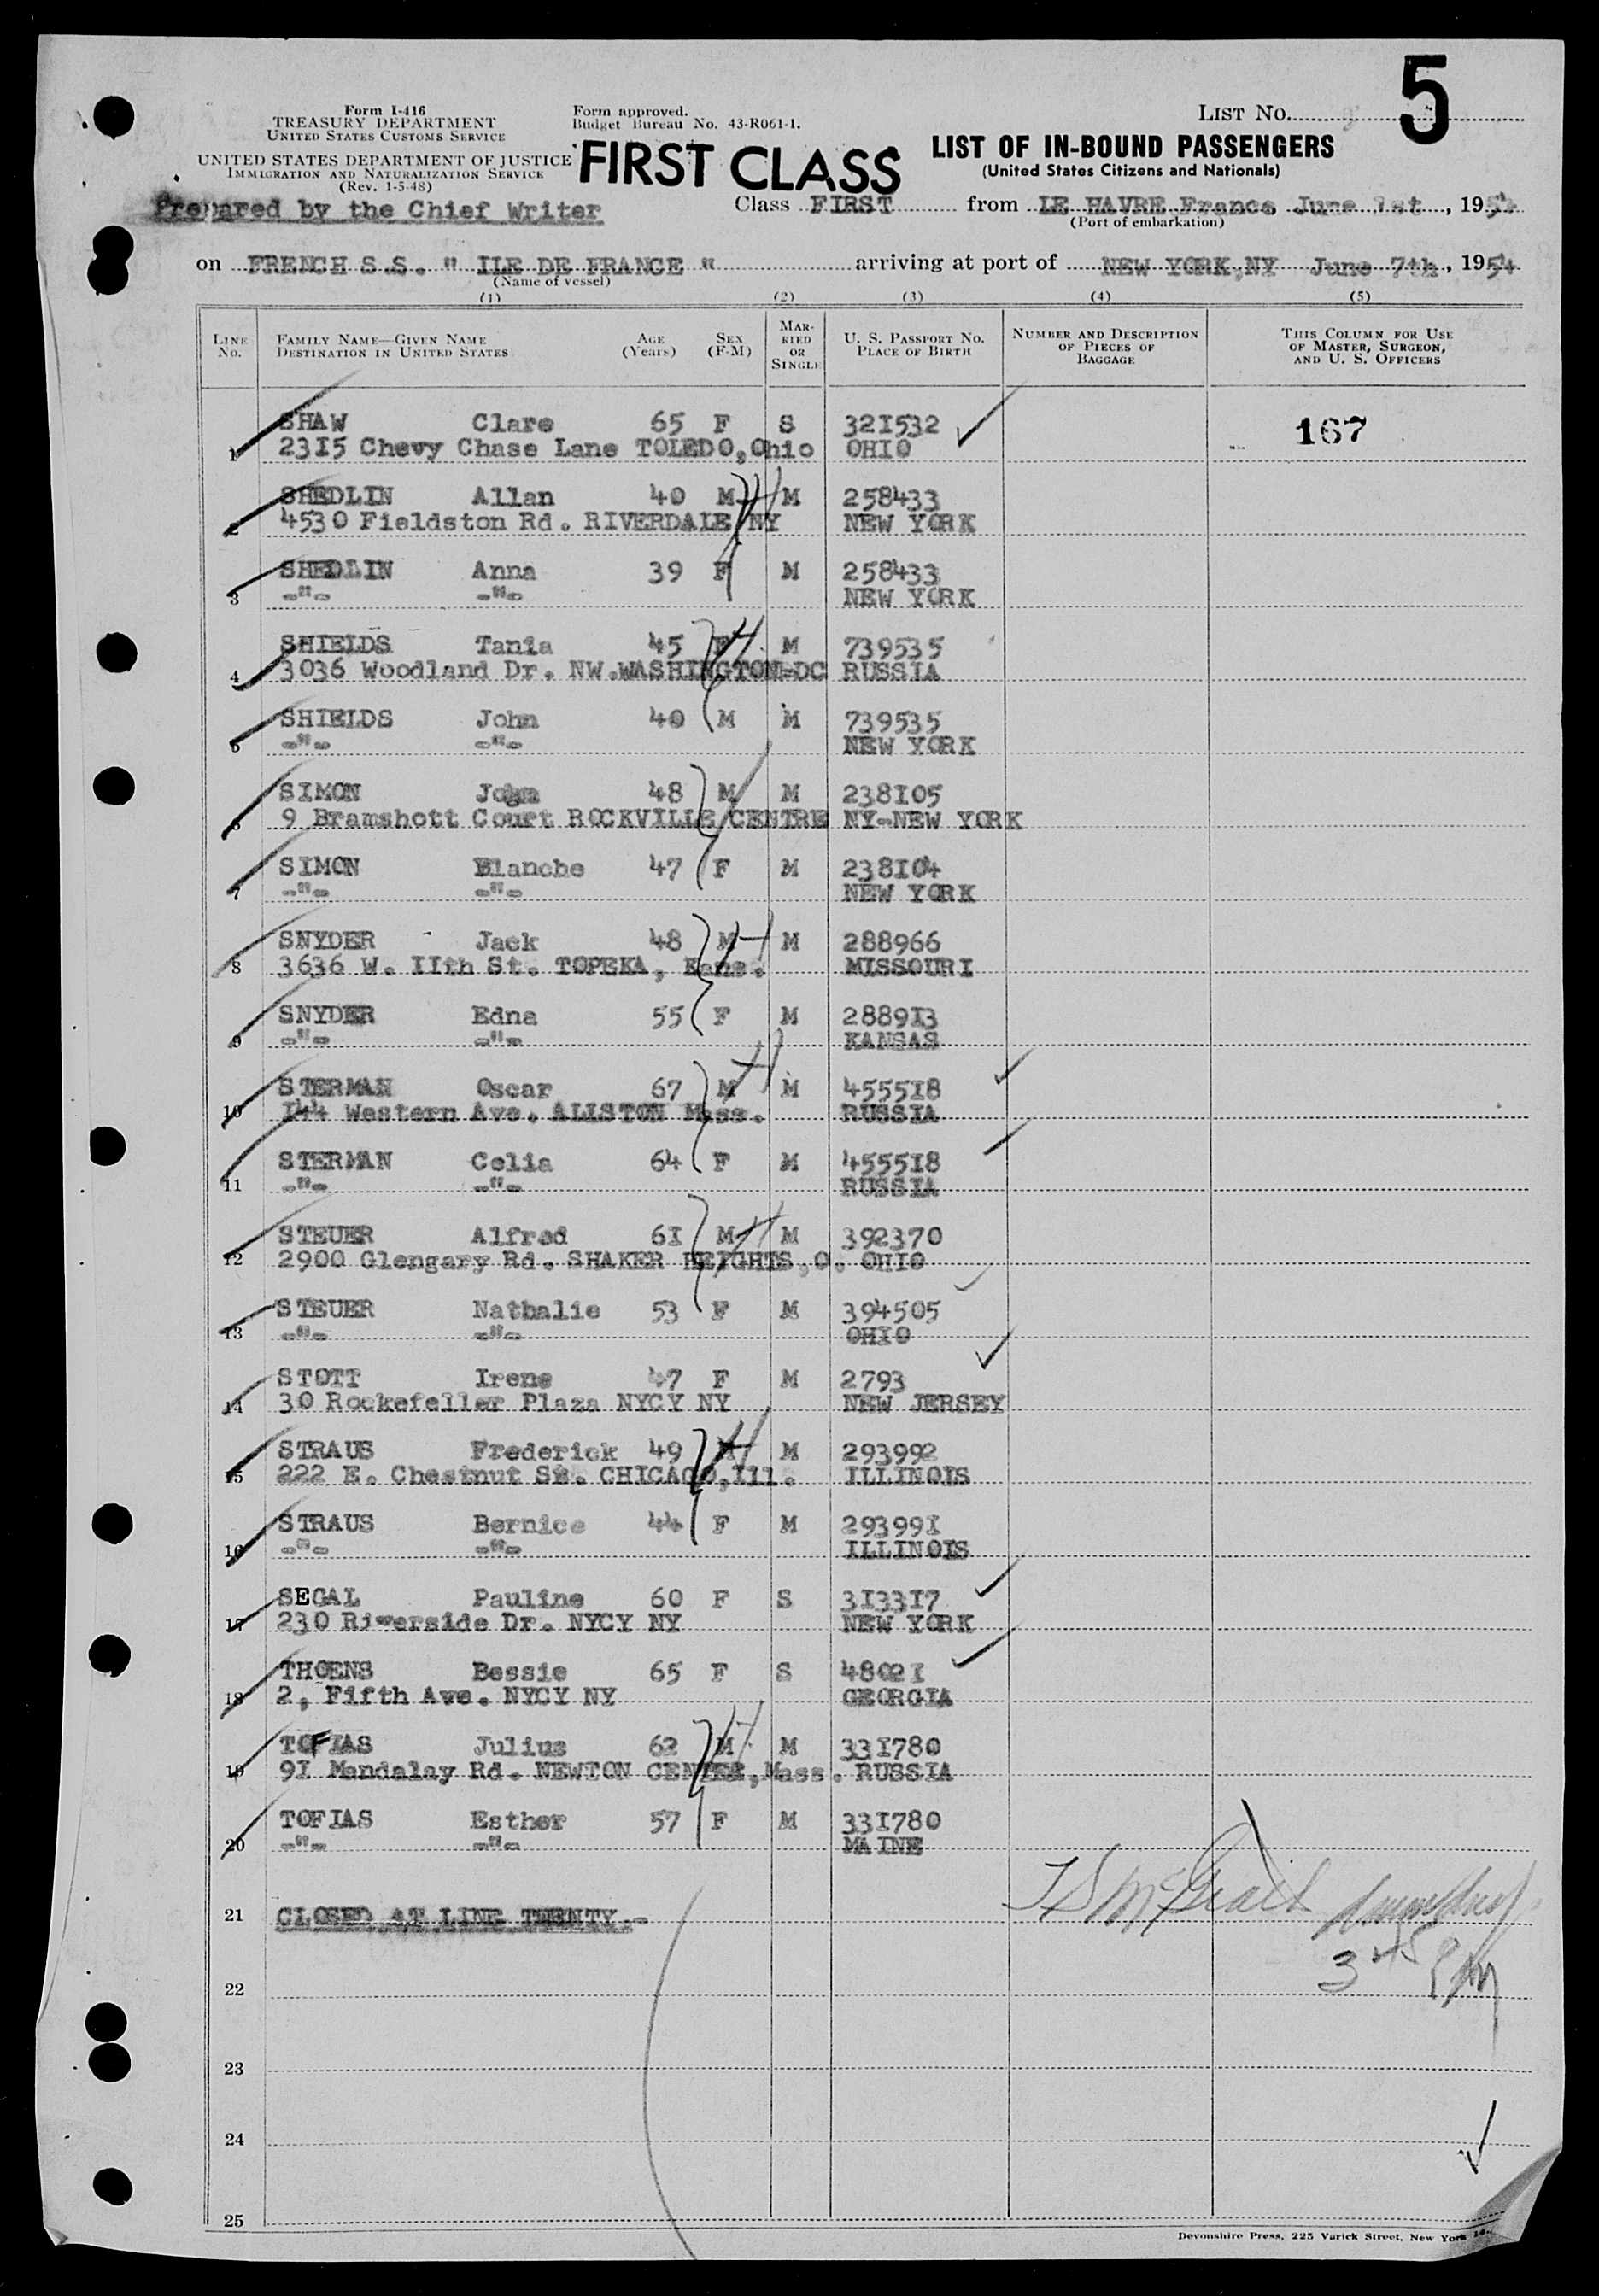 5
Form I-416
TREASURY DEPARTMENT
UNITED STATES CUSTOMS SERVICE
UNITED STATES DEPARTMENT OF JUSTICE
IMMIGRATION AND NATURALIZATION SERVICE
(Rev. 1-5-48)
Form approved.
Budget Bureau No. 43-R061-1.
FIRST CLASS
LIST NO.
LIST OF IN-BOUND PASSENGERS
(United States Citizens and Nationals)
Prepared by the Chief Writer
Class FIRST from LE HAVRE France June 1st, 1954
(Port of embarkation)
on FRENCH S.S. " ILE DE FRANCE " arriving at port of NEW YORK,NY June 7th, 1954
(Name of vessel)
(1) (2) (3) (4) (5)
LINE NO. FAMILY NAME—GIVEN NAME DESTINATION IN UNITED STATES AGE (Years) SEX (F-M) MARRIED OR SINGLE U. S. PASSPORT NO. PLACE OF BIRTH NUMBER AND DESCRIPTION OF PIECES OF BAGGAGE THIS COLUMN FOR USE OF MASTER, SURGEON, AND U. S. OFFICERS
SHAW Clare 65 F S 321532 167
1 2315 Chevy Chase Lane TOLEDO,Ohio OHIO
SHEDLIN Allan 40 M M 258433
2 4530 Fieldston Rd. RIVERDALE NY NEW YORK
SHEDLIN Anna 39 F M 258433
3 -"- -"- NEW YORK
SHIELDS Tania 45 F M 739535
4 3036 Woodland Dr. NW.WASHINGTON-DC RUSSIA
SHIELDS John 40 M M 739535
5 -"- -"- NEW YORK
SIMON John 48 M M 238105
6 9 Bramshott Court ROCKVILLE CENTRE NY-NEW YORK
SIMON Blanche 47 F M 238104
7 -"- -"- NEW YORK
SNYDER Jack 48 M M 288966
8 3636 W. IIth St. TOPEKA, Kans. MISSOURI
SNYDER Edna 55 F M 288913
9 -"- -"- KANSAS
STERMAN Oscar 67 M M 455518
10 144 Western Ave. ALLSTON Mass. RUSSIA
STERMAN Celia 64 F M 455518
11 -"- -"- RUSSIA
STEUER Alfred 61 M M 392370
12 2900 Glengary Rd. SHAKER HEIGHTS,O. OHIO
STEUER Nathalie 53 F M 394505
13 -"- -"- OHIO
STOTT Irene 47 F M 2793
14 30 Rockefeller Plaza NYCY NY NEW JERSEY
STRAUS Frederick 49 M M 293992
15 222 E. Chestnut St. CHICAGO,Ill. ILLINOIS
STRAUS Bernice 44 F M 293991
16 -"- -"- ILLINOIS
SEGAL Pauline 60 F S 313317
17 230 Riverside Dr. NYCY NY NEW YORK
THOENS Bessie 65 F S 48021
18 2, Fifth Ave. NYCY NY GEORGIA
TOFIAS Julius 62 M M 331780
19 91 Mandalay Rd. NEWTON CENTER,Mass. RUSSIA
TOFIAS Esther 57 F M 331780
20 -"- -"- MAINE
21 CLOSED AT LINE TWENTY.-
3 45 PM
22
23
24
25
Devonshire Press, 225 Varick Street, New York